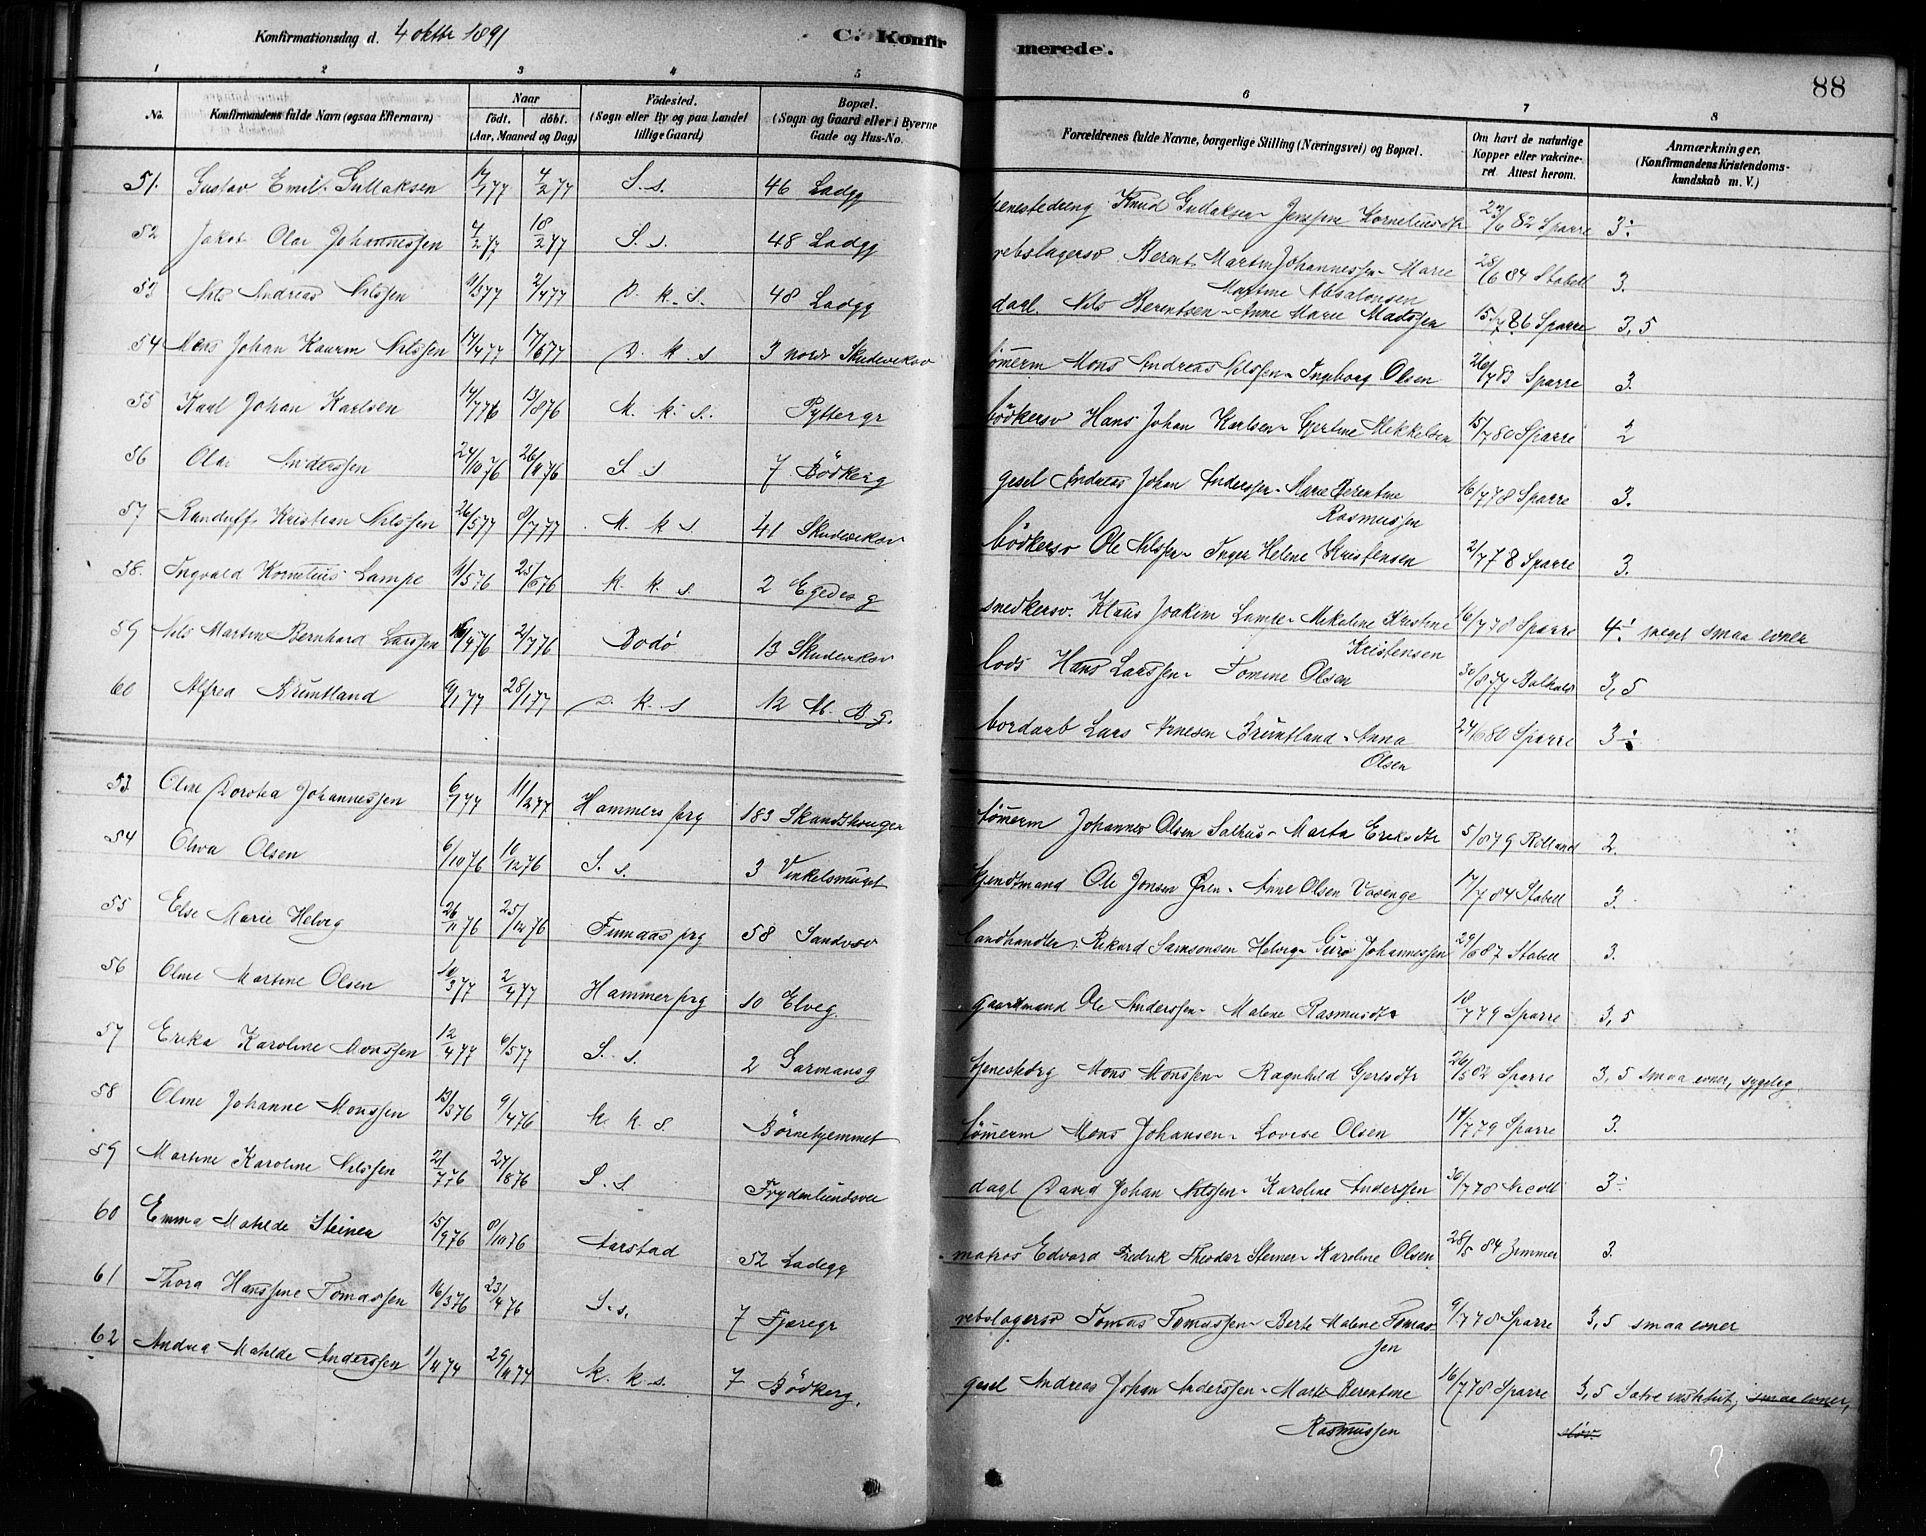 Konfirmationsdag d. 4 oktbr 1891
C. Konfirmerede.
88
1 2 3 4 5 6 7 8
No.
Konfirmandens fulde Navn (ogsaa Efternavn)
Naar
födt. döbt.
(Aar, Maaned og Dag)
Födested.
(Sogn eller By og paa Landet
tillige Gaard)
Bopæl.
(Sogn og Gaard eller i Byerne
Gade og Hus-No.
Forældrenes fulde Navne, borgerlige Stilling (Næringsvei) og Bopæl.
Om havt de naturlige
Kopper eller vakcine-
ret. Attest herom.
Anmærkninger.
(Konfirmandens Kristendoms-
kundskab m. V.)
51. Gustav Emil Gullaksen 4/2 77 S. s. 46 Ladgg tjenestedreng Knud Gullaksen - Korneliusdtr 23/6 82 Sparre 3÷
52 Jakob Olai Johannessen 4/2 77 18/2 77 S. s. 48 Ladgg rebslagersv Berent Martin Johannessen - Marie 28/6 84 Stabell 3.
Martine Absalonsen
53 Nils Andreas Nilssen 9/3 77 2/4 77 D. k. s. 48 Ladgg daal. Nils Berentsen - Anne Marie Madssen 15/7 86 Sparre 3,5
54 Mons Johan Nilssen 17/4 77 17/6 77 D. k. s 3 nordr Skudevikov tömerm Mons Andreas Nilssen - Ingborg Olsen 26/7 83 Sparre 3.
55 Karl Johan Karlsen 14/7 76 13/8 76 M. k. s. Pyttergr bödkersv Hans Johan Karlsen - Gjertine Mikkelsen 15/7 80 Sparre 2
56 Olai Anderssen 24/10 76 26/11 76 S. s 7 Bödkerg gesel Andreas Johan Anderssen - Marte Berentine 16/7 78 Sparre 3.
Rasmussen
57 Randulff Kristian Nilssen 26/5 77 8/7 77 M. k s 41 Skudevikov bödkersv Ole Nilssen - Inger Helene Kristensen 2/7 78 Sparre 3.
58. Ingvald Kornelius Lampe 11/5 76 25/6 76 k. k. s 2 Egedes g snedkersv. Klaus Joakim Lampe - Mikaline Kristine 16/7 78 Sparre 4÷ meget smaa evner
Kristensen
59 Nils Martin Bernhard Larssen 16/4 76 2/7 76 Bodø 13 Skudevikov lods Hans Larssen - Tomine Olsen 30/8 77 3,5
60 Alfred Bruntland 9/1 77 28/1 77 D. k. s 12 M. B. g. bordarb Lars Arnesen Bruntland - Anna 24/6 80 Sparre 3÷
Olsen
53 Oline Dorotea Johannessen 6/1 77 11/2 77 Hammers prg 183 Skandthougen tömerm Johannes Olsen Salhus - Marta Eriksdtr 5/8 79 Rolland 2.
54 Oliva Olsen 6/10 76 10/12 76 S. s. 3 Vinkelsmuget Ole Jonsen Øren - Anne Olsen Vasenge 17/7 84 Stabell 3.
55 Else Marie Helvig 26/11 76 25/12 76 Finnaas prg 58 Sandvsv landhandler Rikard Samsonsen Helvig - Guro Johannessen 29/6 87 Stabell 3.
56 Oline Martine Olsen 10/3 77 2/4 77 Hammer prg 10 Elveg. gaardmand Ole Anderssen - Malene Rasmusdtr 18/7 79 Sparre 3,5
57 Erika Karoline Monssen 12/4 77 6/5 77 S. s. 2 Garmansg tjenestedrg Mons Monssen - Ragnhild Gjertsdtr 26/5 82 Sparre 3,5 smaa evner, sygelig.
58 Oline Johanne Monssen 13/3 76 9/4 76 k. k. s Börnehjemmet tömerm Mons Johansen - Lovise Olsen 14/7 79 Sparre 3.
59 Martine Karoline Nilssen 21/7 76 27/8 76 S. s Frydenlundsvei dagl David Johan Nilssen - Karoline Anderssen 30/7 78 Nicoll 3÷
60 Emma Matilde Steiner 15/9 76 8/10 76 Aarstad 52 Ladegg matros Edvard Fredrik Theodor Steiner - Karoline Olsen 28/5 84 Zimmer 3.
61 Thora Hanssine Tomassen 16/3 76 23/4 76 S. s. 7 Fjæregr rebslagersv Tomas Tomassen - Berte Malene Tomas- 9/7 78 Sparre 3,5 smaa evner
sen
62 Andrea Matilde Anderssen 1/11 74 29/11 74 k. k. s. 7 Bödkerg. gesel Andreas Johan Anderssen - Marte Berentine 16/7 78 Sparre 3,5 institut, smaa evner,
Rasmussen sløv.
?